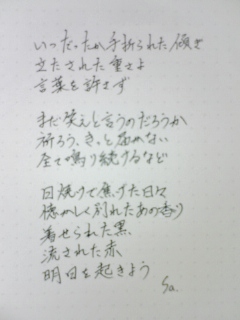 いつだったか手折られた傾き
立たされた重さよ
言葉を許さず
まだ笑えと言うのだろうか
祈ろう、きっと届かない
全て鳴り続けるなど
日焼けて焦げた日々
懐かしく別れたあの香り
着せられた黒
流された赤
明日を起きよう
Sa.